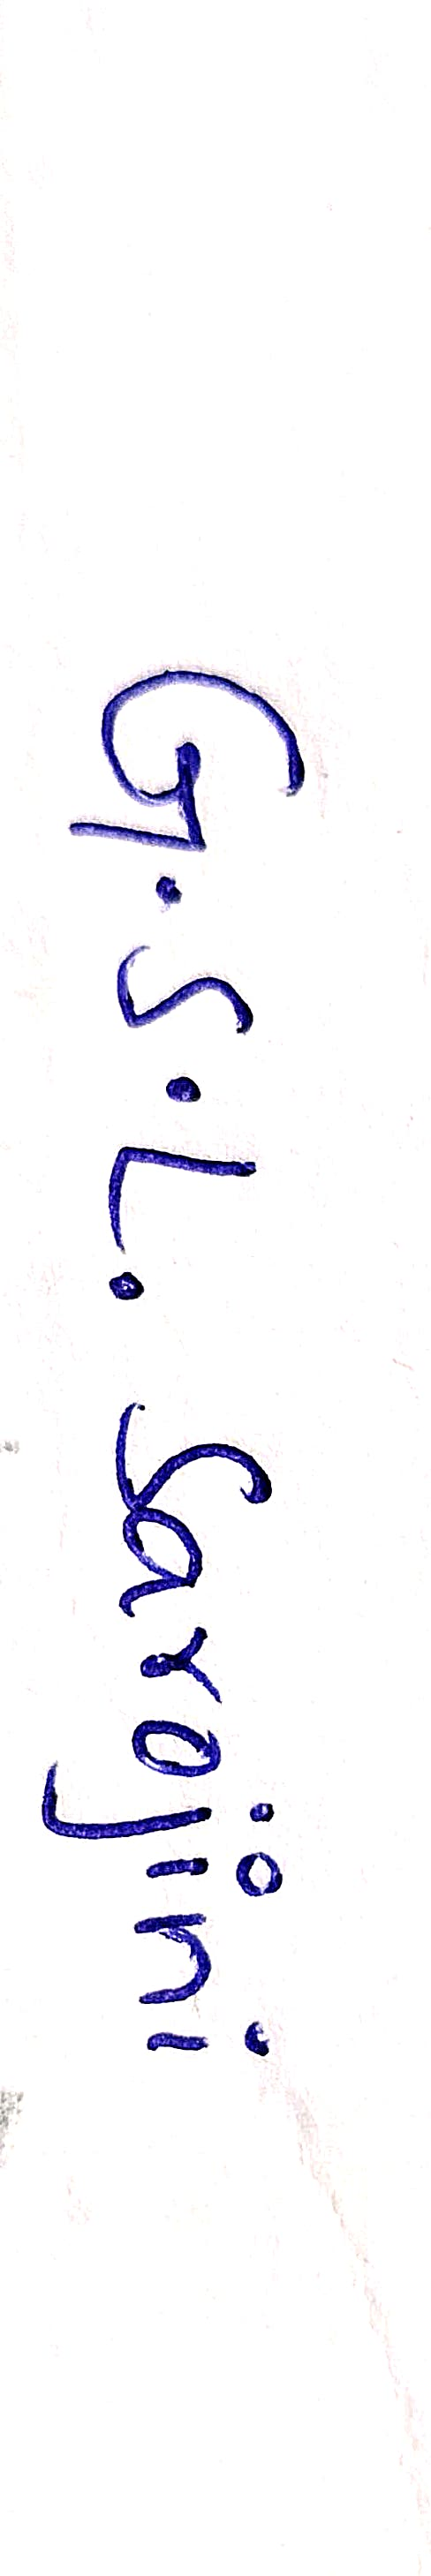 G.S.L. Sarojini